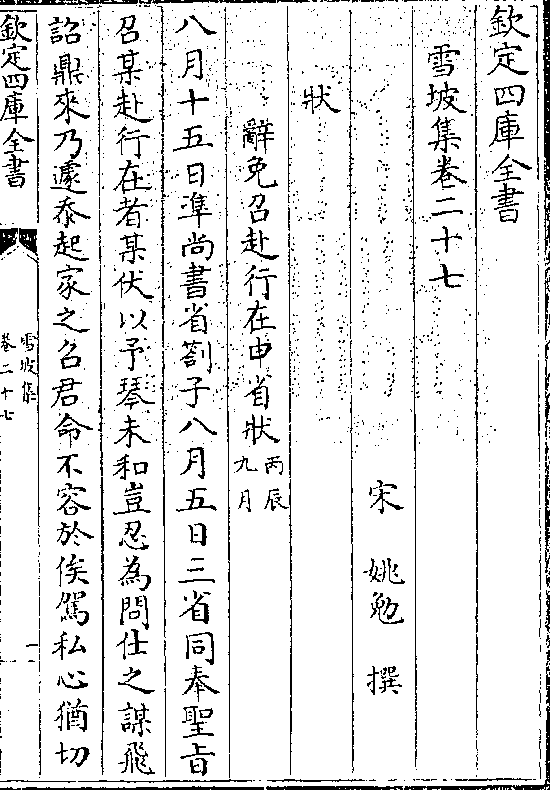 欽定四庫全書
雪坡集卷二十七
宋　姚勉　撰
狀
辭免召赴行在申省狀丙辰九月
八月十五日準尚書省劄子八月五日三省同奉聖旨
召某赴行在者某伏以予琴未和豈忍為問仕之謀飛
詔鼎來乃遽忝起家之召君命不容於俟駕私心猶切
欽定四庫全書
雪坡集
卷二十七
一